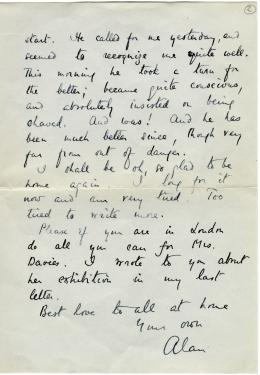 2
start. He called for me yesterday, and
seemed to recognize me quite well.
This morning he took a turn for
the better; became quite conscious,
and absolutely insisted on being
shaved. And was! And he has
been much better since, though very
far from out of danger.
I shall be oh, so glad to be
home again. I long for it
now and am very tired. Too
tired to write more.
Please if you are in London
do all you can for Mrs.
Davies. I wrote to you about
her exhibition in my last
letter.
Best love to all at home
Your own
Alan